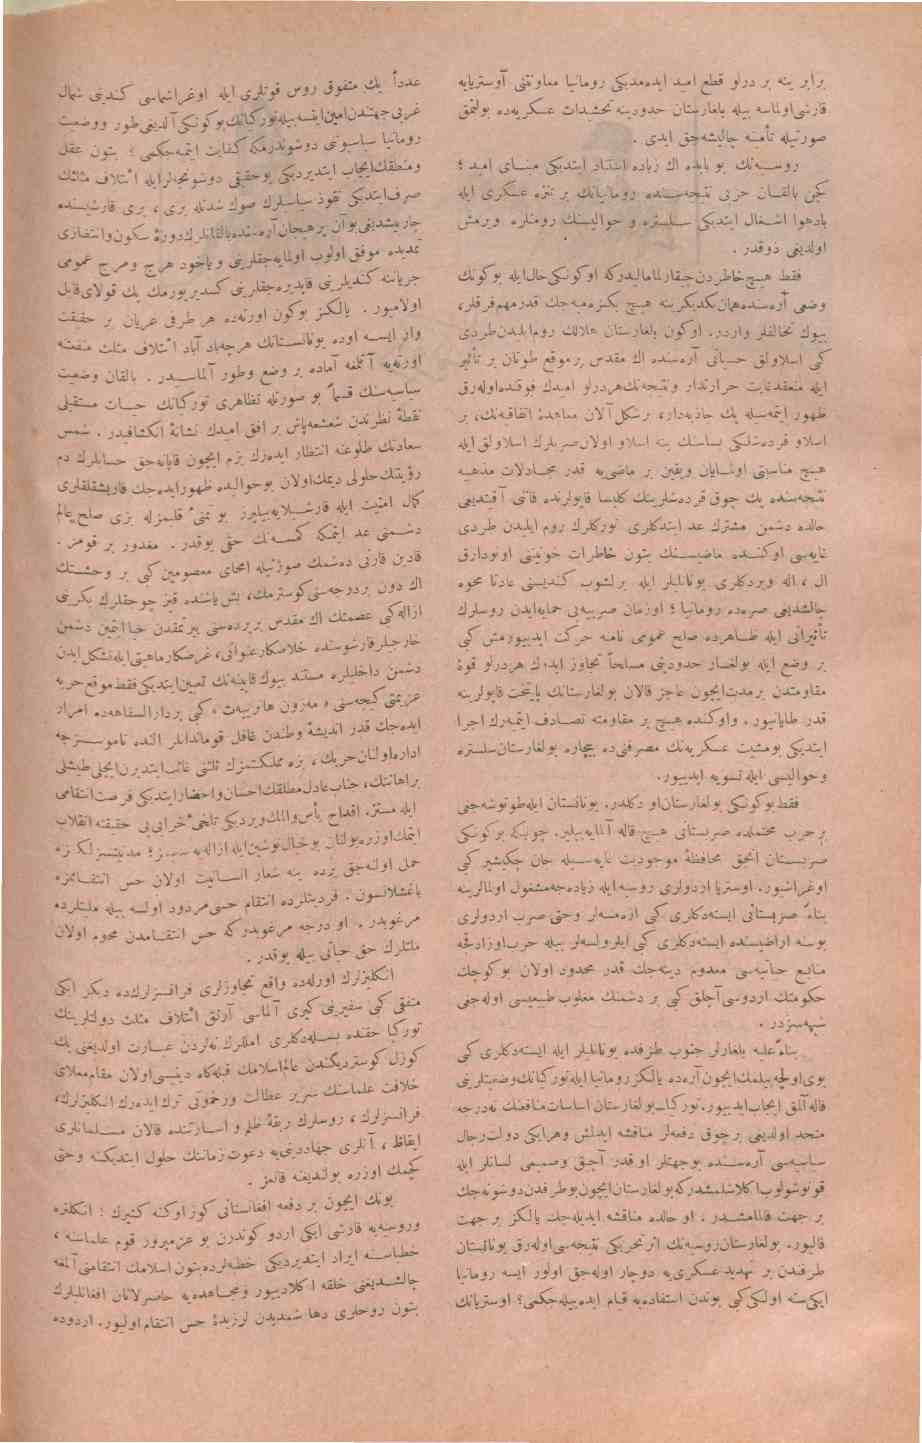 برابر ینه بر درلو قطع امید ایده‌مدیکی رومانیا معاونتنی آوستریایه
قارشی اولماسه بیله بلغارستان حدودینه تحشدات عسکریه‌ده بولنمق
صورتیله تأمینه چالیشه‌جق ایدی .
روسیه‌نك بو بابده اك زیاده استناد ایتدیکی منبای امید ؛
کچن بالقان حربی نتیجه‌سنده رومانیانك بر نفره عسکری ایله
بادهوا اشغال ایتدیکی سلستره و حوالیسنك رومنلره ویرمش
اولدیغی ذوقدر .
فقط هیچ خاطردن چیقارلمامالیدرکه اوکونکی حال ایله بوکونك
وضعی آره‌سنده همان یکدیکرینه هیچ بکزه‌میه‌جك قدر مهم فرقلر،
بیوك تخالفلر واردر. اوکون بلغارستان هلالك روم ایلیدن طردی
کبی اسلاولق حسیاتی آره‌سنده اك مقدس بر موقع طوتان بر تأثیر
ایله منعقد غایت حرارتدار و نتیجه‌نك هر درلو امیدك فوقنده اوله‌رق
ظهور ایتمه‌سیله پك جاذبه‌دار، بر شکل آلان معاهدهٔ اتفاقیه‌نك، بر
اسلاو قرده‌شلکی بسامك ینه اسلاو اولان صربلرك اسلاولق ایله
هیچ مناسبتی اولمایان ویقین بر ماضی‌یه قدر مجادلات مذهبیه
نتیجه‌سنده پك چوق قرده‌شلرینك کلیسا قاپولرنده قانی آقیتدیغی
حالده دشمن مشترك عد ایتدکلری تورکلرك روم ایلیدن طردی
غایه‌سی اوکنده ماضیسنك بتون خاطرات خونینی اونودارق
ال ، اله ویردکلری یونانلیلر ایله برلشوب کندیسنی عادتا محوه
چالشدیغی صره‌ده رومانیا ؛ اوزمان صربیه‌یی حمایه ایدن روسلرك
تأثیراتی ایله ظاهرده صلح عمومی نامنه حرکت ایدییورمش کبی
بر وضع ایله بولغار حدودینی مسلحاً تجاوز ایده‌رك هر درلو قوهٔ
مقاومتدن بر مدت ایچون عاجز قالان بولغارستانك پایتخت قاپولرینه
قدر طایانیور. واوکنده هیچ بر مقاومته تصادف ایتمیه‌رك اجرا
ایتدیکی بو مشیت عسکریه‌نك مصرفنی‌ده بیچاره بولغارستان سلستره
وحوالیسی ایله تسویه ایدییور.
فقط بوکونکی بولغارستان او دکلدر. یونانستان ایله طوتوشه‌جغی
بر حرب محتملده صربستانی هیچ قاله آلمایه‌بیلیر. چونکه بوکونکی
صربستان آنجق محافظهٔ موجودیت غایه‌سیله جان چکیشیر کبی
اوغراشیور. اوستریا اردولری روسیه ایله زیاده‌جه مشغول اولمالرینه
بناءً صربستانی ایسته‌دکلری کبی ازه‌مسه‌لر وحتی صرب اردولری
بوسنه اراضیسنده ایسته‌دکلری کبی ایلرولسه‌لر بیله حرب اوزادقجه
منابع حیاتیه‌سی معدوم دینه‌جك قدر محدود اولان بو کوچك
حکومتك اردوسی آچلق کبی بر دشمنك مغلوب طبیعیسی اوله‌جغی
شبهه‌سزدر .
بناءً علیه بلغارلر جنوب طرفنده یونانلیلر ایله ایسته‌دکلری کبی
بوی اولچه بیلمك ایچون آره‌ده یالکز رومانیا ایله تورکیانك وضعیتلرینی
قاله آلمق ایجاب ایدییور. تورکیا ـ بولغارستان اساسات منافعك نه‌درجه
متحد اولدیغی بر چوق دفعه‌لر مناقشه ایدلش وهرایکی دولت رجال
سیاسیه‌سی آره‌سنده بوجهتلر او قدر آچیق وصمیمی لسانلر ایله
قونوشولوب اکلاشلمشدرکه بولغارستان ایچون بو طرفدن دوشونه‌جك
بر جهت قالمامشدر . او حالده مناقشه ایدیله‌جك یالکز بر جهت
قالیور. بولغارستان روسیه‌نك اثر تحریکی نتیجه‌سی اوله‌رق یونانستان
طرفندن بر تهدید عسکری‌یه دوچار اوله‌جق اولور ایسه رومانیا
ایکی سنه اولکی کبی بوندن استفاده‌یه قیام ایده‌بیله‌جکمی؟ اوستریانك
عدداً پك متفوق روس قوتلری ایله اوغراشماسی کندینی شمال
غربی جهتندن امین ایتسه بیله تورکیانك بوکونکی آلدیغی طور ووضعیت
رومانیا سیاسیونی دوشوندرمکه کفایت ایتمه‌جکمی ؛ بتون عقل
ومنطقك ایجاب ایتدیردیکی بو حقیقتی دوشونمه‌دیلر ایله ائتلاف مثلثك
صرف ایتدیکی نفوذ سیاسیلرك صوك شدتله بری ، بری قارشیسنده
چارپیشدیغی بو آن پرهیجان آره‌سنده بالقانلرك دورهٔ سکون وانتظاری
تمدیده موفق اولوب اولمایه‌جقلرینی ویاخود هرج ومرج عمومی
جریاننه کندیلرینی قاپدیره‌جقلرینی کسدیریورمك پك قولای قابل
اولامیور . یالکز بوکون اورته‌ده هر طرفی عریان بر حقیقت
وار ایسه اوده یونانستانك هرچه‌بادآباد ائتلاف مثلث منفعتنه
اورته‌یه آتیلمغه آماده بر وضع وطور آلماسیدر . بالقان وضعیت
سیاسیه‌سنك قسماً بو صورتله تظاهری تورکیانك حیات مستقبلی
نقطهٔ نظرندن شعشعه‌پاش بر افق امیدك نشانهٔ انکشافیدر . شمس
سعادتك طلوعنه انتظار ایده‌رك بزم ایچون قاپانه‌جق حسابلرك دم
رؤیتك حلولی دیمك اولان بوحوالیده ظهور ایده‌جك قاریشقلقلری
کمال امنیت ایله قارشیلایه‌بیلیرز. بو تمنیٔ قلبمزله بزی صلح عالم
دشمنی عد ایتمکه کمسه‌نك حقی یوقدر . مغدور بر قومز .
قادین قارنی ده‌شمك صورتیله امحای معصومین کبی بر وحشتك
اك دون بر درجه‌سنی کوسترمك، بش یاشنده قیز چوجقلرك بکرینی
ازاله کبی عصمتك اك مقدس بر پرده‌سنی ییرتمقدن حیا ایتمین دشمن
خارجیلر قارشوسنده خلاصکار عنوانی، غرضکار ماهیتی ایله تشکل ایدن
دشمن داخلیلره مستند بیوك قابینه‌نك تعیین ایتدیکی فقط موقع حربه
عزیمتی کیجه‌سی « مه‌زون هانریه‌ت » کبی بر دار السفاهه‌ده امرار
ایده‌جك قدر اندیشهٔ وطندن غافل قوماندانلر النده ناموسزجه
اداره اولنان حربك ، بزه مملکتمزك ثلثنی غائب ایتدیرن ایجلی طبشلی
بر اهانتك، جناب عادل مطلقك احسان واحضار ایتدیکی فرصت انتقامی
ایله مستز. اقداح یأس والمك ویردیکی تلخئ خرابی‌یی حقیقته انقلاب
ایتمك اوزره بولنان بو خیال نوشین ایله ازاله‌یه سه‌بیز ؛ مدنیتسزلکمزه
حمل اولنه‌جق یرده ینه شعار انسانیت اولان حس انتقاممزه
باغشلانسون . فردیتلرده انتقام حسی مردود اولسه بیله ملیتلرده
مرغوبدر . او درجه مرغوبدرکه حس انتقامدن محروم اولان
ملتلرك حق حیاتی بیله یوقدر .
انکلیزلرك اورلاده واقع تجاوزلری فرانسزلرك‌ده دیکر ایکی
متفقی کبی سفیرینی کیری آلماسی آرتق ائتلاف مثلث دولتلرینك
تورکیا حقنده بسله‌دکلری امللرك نه‌لردن عبارت اولدیغنی پك
کوزل کوستردیکندن عالم اسلامك قبله‌کاه دینیسی اولان مقام معلای
خلافت علماسنك سریر عطالت ورخوتی ترك ایده‌رك انکلیزلرك،
فرانسزلرك ، روسلرك ربقهٔ ظلم و اسارتنده قالان مسلمانلری
ایقاظ ، آنلری جهاد دینی‌یه دعوت زماننك حلول ایتدیکنه وحتی
کچمك اوزره بولندیغنه قانعز .
بونك ایچون بر دفعه افغانستانی کوز اوکنه کتیرك ؛ انکلتره
وروسیه‌یه قارشی ایکی اردو کوندرن بو عزمپرور قوم علماسنه ،
خطباسنه ایراد ایتدیردیکی خطبه‌لرده بتون اسلامك انتقامنی آلمغه
چالشدیغنی خلقه اکلادییور ومجاهده‌یه حاضرلانان افغانلیلرك
بتون روحلری دها شمدیدن لرزیدهٔ حس انتقام اولیور. اردوده